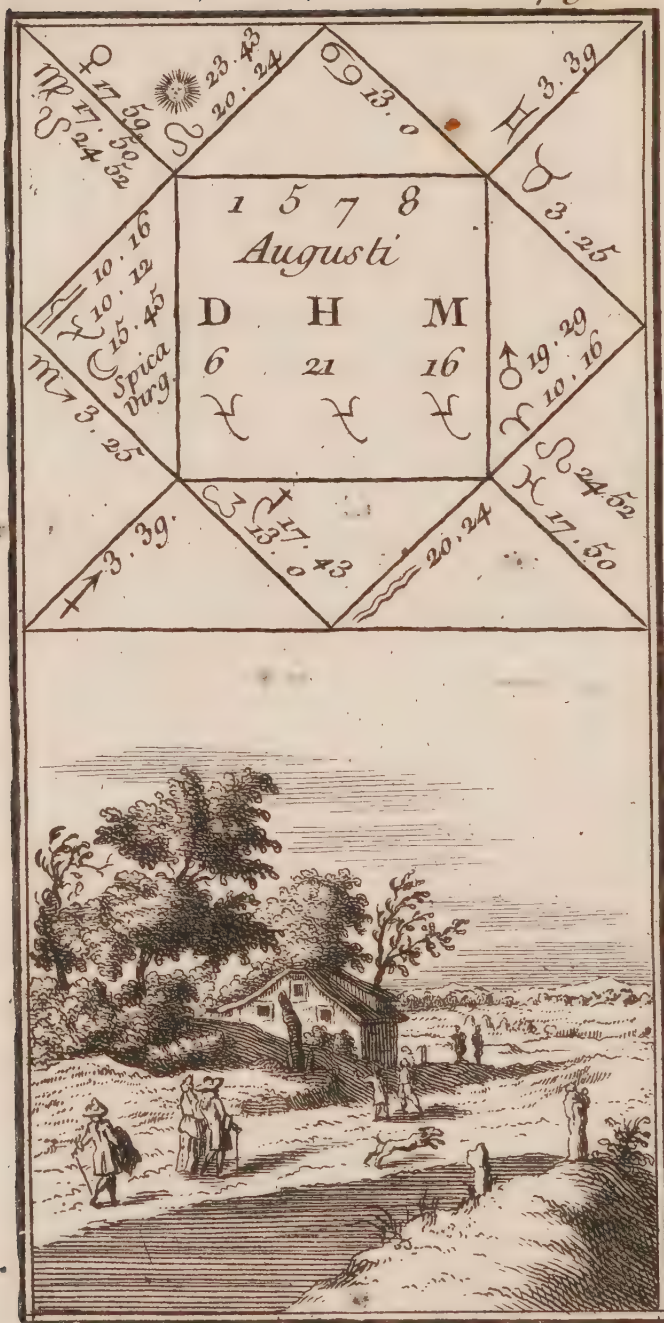 ♀ 17.59
♍ 17.50
☋ 24.52
☉ 23.43
♌ 20.24
♋ 13.0
♊ 3.39
♉ 3.25
1 5 7 8
Augusti
D H M
6 21 16
♃ ♃ ♃
♎ 10.16
♃ 10.12
☽ 15.45
Spica
Virg.
♏ 3.25
♂ 19.29
♈ 10.16
☊ 24.52
♓ 17.50
♐ 3.39.
♄ 17.43
♑ 13.0
♒ 20.24